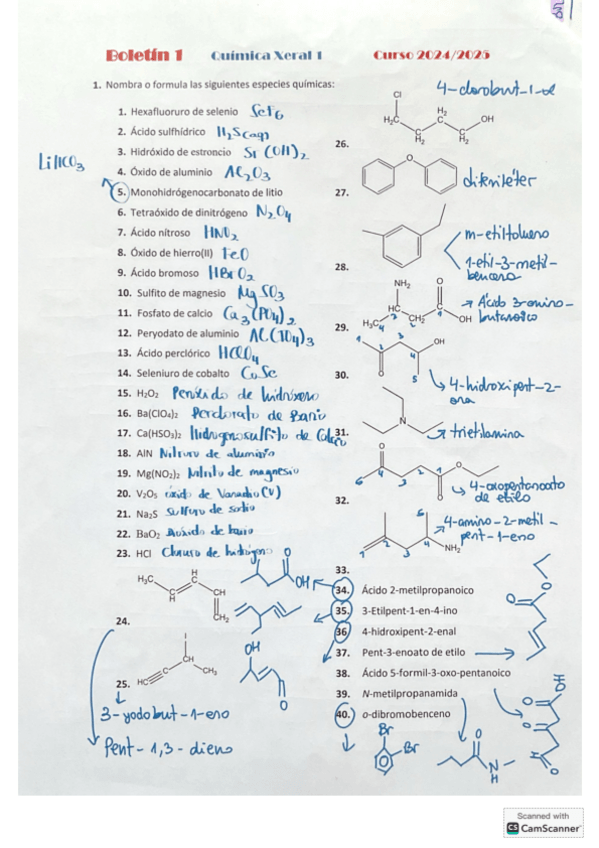 Boletín 1 Química Xeral 1 Curso 2024/2025
1. Nombra o formula las siguientes especies químicas:
1. Hexafluoruro de selenio SeF6
2. Ácido sulfhídrico H2S(aq)
3. Hidróxido de estroncio Sr(OH)2
LiHCO3
4. Óxido de aluminio Al2O3
5. Monohidrógenocarbonato de litio
6. Tetraóxido de dinitrógeno N2O4
7. Ácido nitroso HNO2
8. Óxido de hierro(II) FeO
9. Ácido bromoso HBrO2
10. Sulfito de magnesio MgSO3
11. Fosfato de calcio Ca3(PO4)2
12. Peryodato de aluminio Al(IO4)3
13. Ácido perclórico HClO4
14. Seleniuro de cobalto CoSe
15. H2O2 Peróxido de hidrógeno
16. Ba(ClO4)2 Perclorato de Bario
17. Ca(HSO3)2 Hidrogenosulfito de Calcio
18. AlN Nitruro de aluminio
19. Mg(NO2)2 Nitrito de magnesio
20. V2O5 óxido de Vanadio(V)
21. Na2S sulfuro de sodio
22. BaO2 de bario
23. HCl Cloruro de hidrógeno
H3C
C
H
H
C
CH
CH2
OH
O
24.
OH
O
I
CH
CH3
HC
25.
3-yodobut-1-eno
Pent-1,3-dieno
4-clorobut-1-ol
Cl
H2C
C
H2
H2
C
C
H2
OH
26.
O
difeniléter
27.
m-etiltolueno
1-etil-3-metil-
benceno
28.
NH2
O
HC
CH2
C
OH
H3C
Ácido 3-amino-
butanoico
29.
1
2
3
4
5
OH
O
30.
4-hidroxipent-2-
ona
N
31.
trietilamina
O
O
O
32.
4-oxopentanoato
de etilo
4-amino-2-metil-
pent-1-eno
NH2
33.
34. Ácido 2-metilpropanoico
35. 3-Etilpent-1-en-4-ino
36 4-hidroxipent-2-enal
37. Pent-3-enoato de etilo
38. Ácido 5-formil-3-oxo-pentanoico
39. N-metilpropanamida
40. o-dibromobenceno
Br
Br
O
N
H
O
O
HO
O
O
H
Scanned with
CS CamScanner